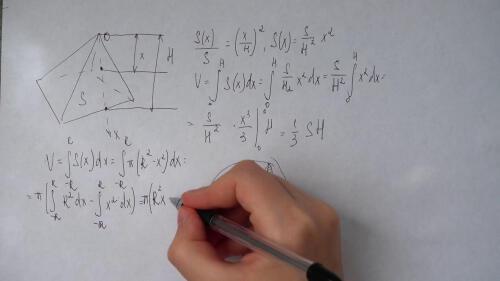 O
x
H
S
x
S(x)/S = (x/H)², S(x) = S/H² x²
V = ∫₀ᴴ S(x)dx = ∫₀ᴴ S/H² x²dx = S/H² ∫₀ᴴ x²dx =
= S/H² · x³/3 |₀ᴴ = 1/3 SH
V = ∫₋ᴿᴿ S(x)dx = ∫₋ᴿᴿ π(R²-x²)dx =
= π(∫₋ᴿᴿ R²dx - ∫₋ᴿᴿ x²dx) = π(R²x